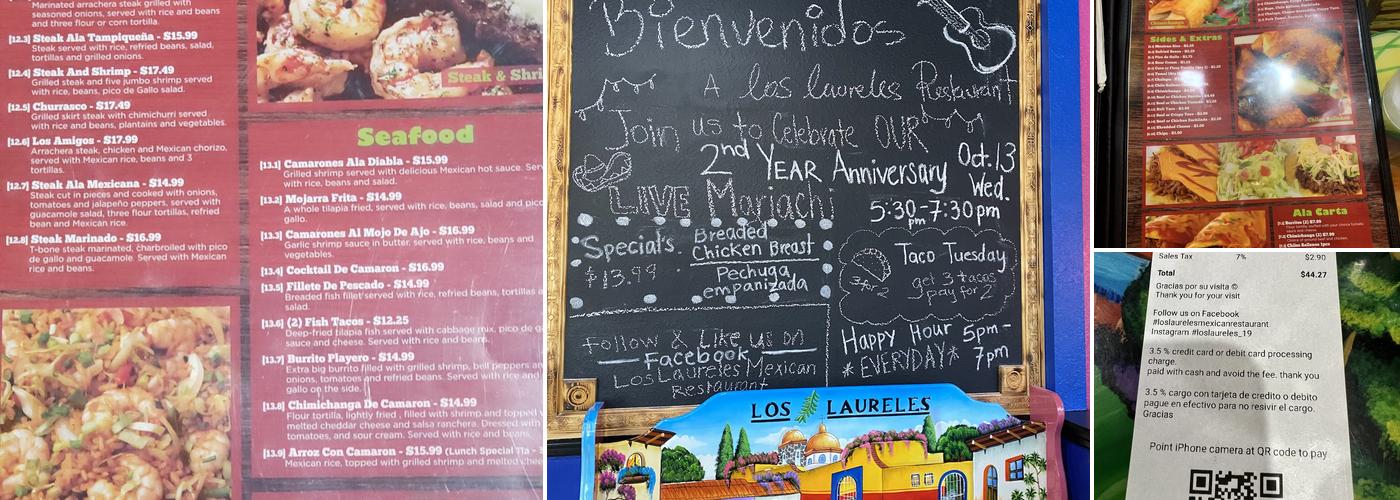 Marinated arrachera steak grilled with
seasoned onions, served with rice and beans
and three flour or corn tortilla.
[12.3] Steak Ala Tampiqueña - $15.99
Steak served with rice, refried beans, salad,
tortillas and grilled onions.
[12.4] Steak And Shrimp - $17.49
Grilled steak and five jumbo shrimp served
with rice, beans, pico de Gallo salad.
[12.5] Churrasco - $17.49
Grilled skirt steak with chimichurri served
with rice and beans, plantains and vegetables.
[12.6] Los Amigos - $17.99
Arrachera steak, chicken and Mexican chorizo,
served with Mexican rice, beans and 3
tortillas.
[12.7] Steak Ala Mexicana - $14.99
Steak cut in pieces and cooked with onions,
tomatoes and jalapeño peppers, served with
guacamole salad, three flour tortillas, refried
bean and Mexican rice.
[12.8] Steak Marinado - $16.99
T-bone steak marinated, charbroiled with pico
de gallo and guacamole. Served with Mexican
rice and beans.
Steak & Shri
Seafood
[13.1] Camarones Ala Diabla - $15.99
Grilled shrimp served with delicious Mexican hot sauce. Ser
with rice, beans and salad.
[13.2] Mojarra Frita - $14.99
A whole tilapia fried, served with rice, beans, salad and pico
gallo.
[13.3] Camarones Al Mojo De Ajo - $16.99
Garlic shrimp sauce in butter, served with rice, beans and
vegetables.
[13.4] Cocktail De Camaron - $16.99
[13.5] Fillete De Pescado - $14.99
Breaded fish fillet served with rice, refried beans, tortillas a
salad.
[13.6] (2) Fish Tacos - $12.25
Deep-fried tilapia fish served with cabbage mix, pico de g
sauce and cheese. Served with rice and beans.
[13.7] Burrito Playero - $14.99
Extra big burrito filled with grilled shrimp, bell peppers an
onions, tomatoes and refried beans. Served with rice and
gallo on the side.
[13.8] Chimichanga De Camaron - $14.99
Flour tortilla, lightly fried , filled with shrimp and topped w
melted cheddar cheese and salsa ranchera. Dressed with
tomatoes, and sour cream. Served with rice and beans.
[13.9] Arroz Con Camaron - $15.99 (Lunch Special 11a - 3
Mexican rice, topped with grilled shrimp and melted chee
Bienvenidos
A los laureles Restaurant
Join us to Celebrate OUR
2nd YEAR Anniversary Oct. 13
Wed.
LIVE Mariachi
5:30-7:30pm
pm
Special's
$13.99
Breaded
Chicken Breast
Pechuga
empanizada
Taco Tuesday
3 for 2
get 3 tacos
pay for 2
Follow & Like us on
Facebook
Los Laureles Mexican
Restaurant
Happy Hour 5pm-
*EVERYDAY* 7pm
LOS LAURELES
Chimichanga
Sides & Extras
Chiles Rellenos
Ala Carta
Sales Tax 7% $2.90
Total $44.27
Gracias por su visita ©
Thank you for your visit
Follow us on Facebook
#loslaurelesmexicanrestaurant
Instagram #loslaureles_19
3.5 % credit card or debit card processing
charge.
paid with cash and avoid the fee. thank you
3.5 % cargo con tarjeta de credito o debito
pague en efectivo para no resivir el cargo.
Gracias
Point iPhone camera at QR code to pay